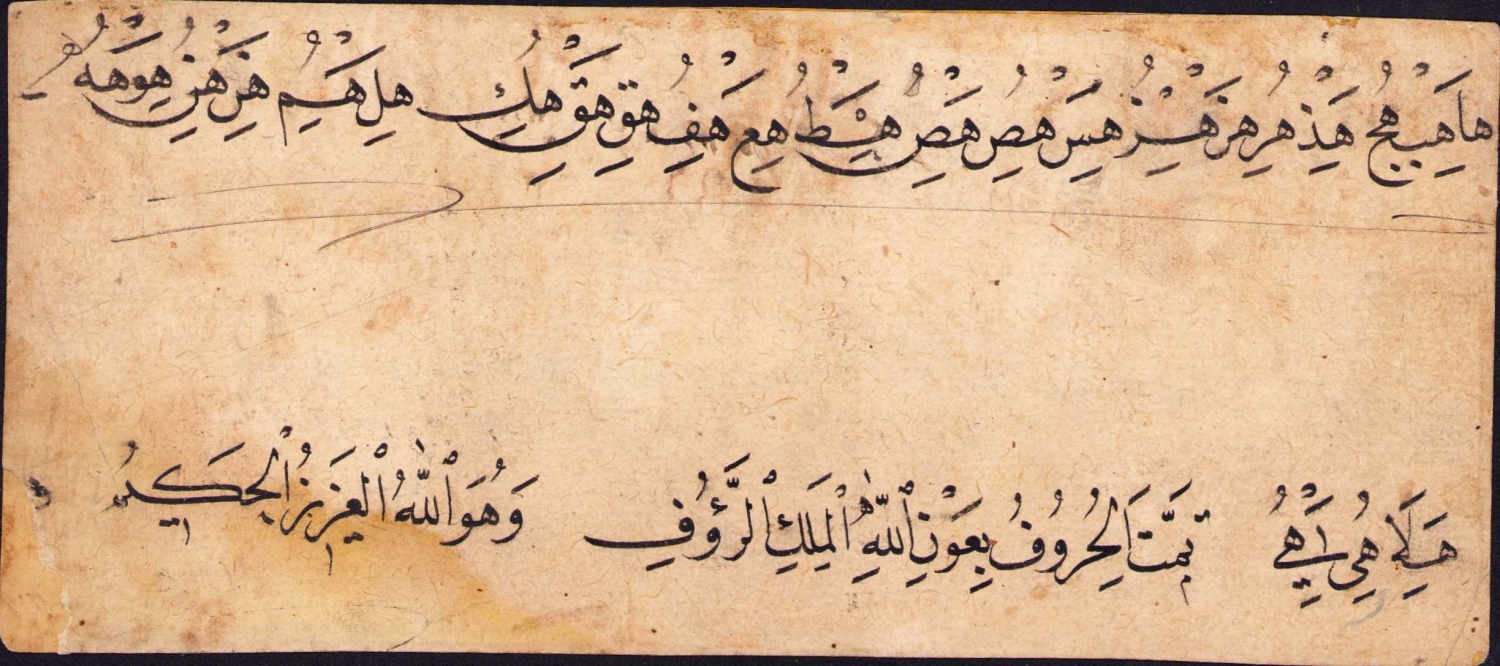 ها هب هج هد هر هر هس هس هص هص هط هع هف هق هق هك هل هم هن هن هو هه
هلا هي هي تمت الحروف بعون الله الملك الرؤف وهو الله العزيز الحكيم